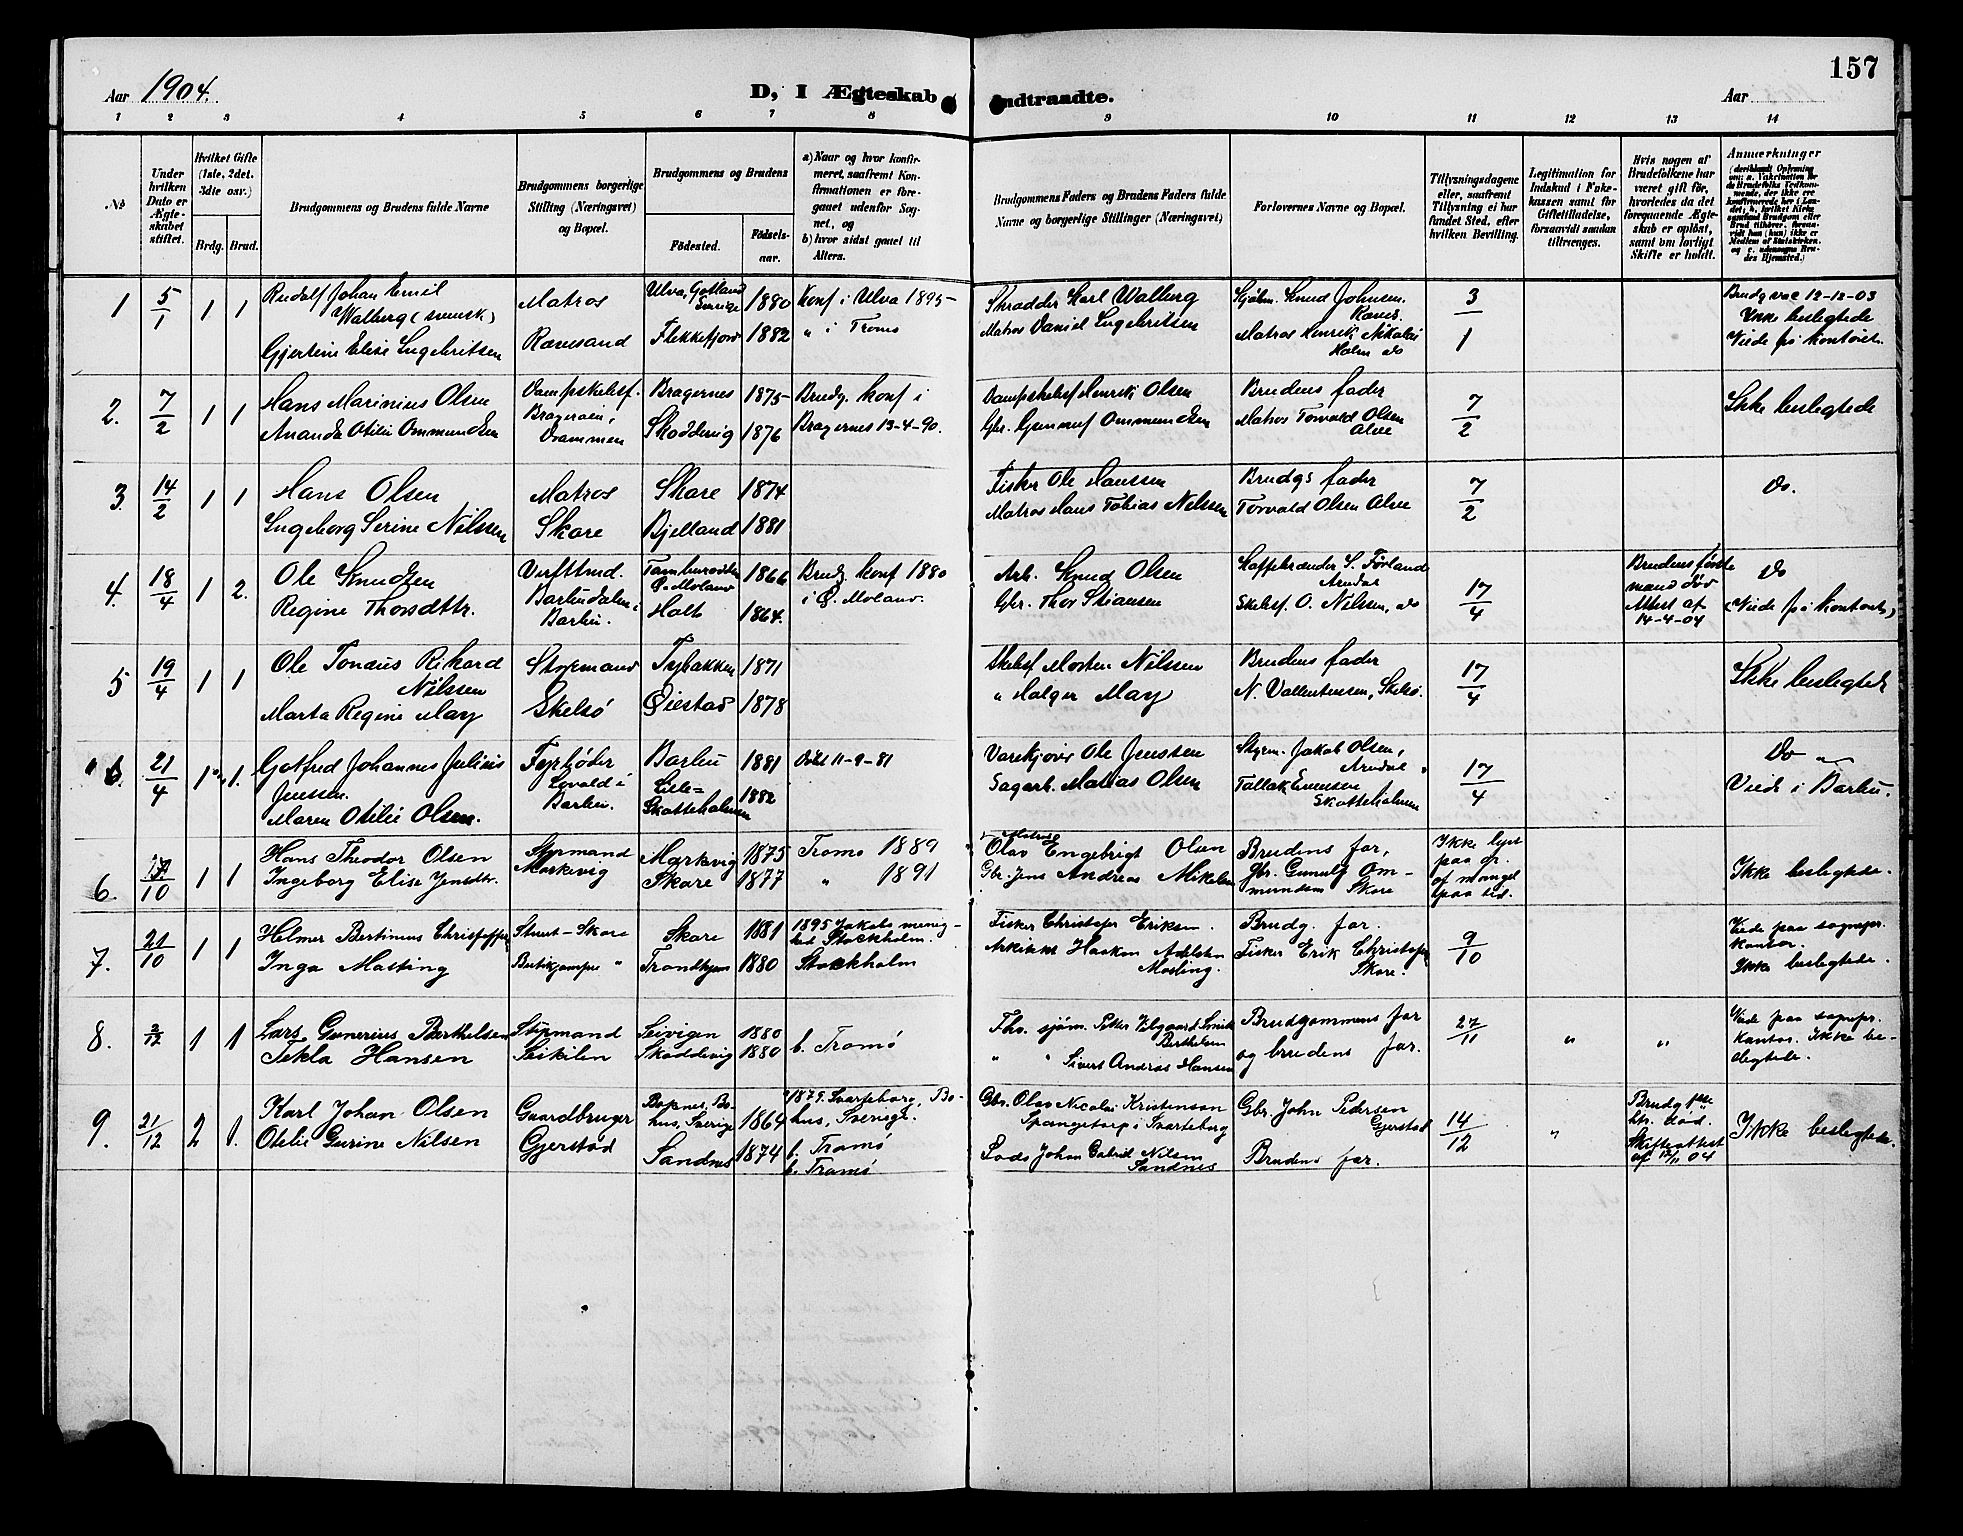 157
Aar 1904.
D, I Ægteskab indtraadte.
Aar
1 2 3 4 5 6 7 8 9 10 11 12 13 14
No
Under hvilken Dato er Ægteskabet stiftet.
Hvilket Gifte (1ste, 2det, 3dte osv.)
Brdg. Brud.
Brudgommens og Brudens fulde Navne
Brudgommens borgerlige Stilling (Næringsvei) og Bopæl.
Brudgommens og Brudens
Fødested. Fødselsaar.
a) Naar og hvor konfirmeret, saafremt Konfirmationen er foregaaet udenfor Sognet, og
b) hvor sidst gaaet til Alters.
Brudgommens Faders og Brudens Faders fulde Navne og borgerlige Stillinger (Næringsvei)
Forlovernes Navne og Bopæl.
Tillysningsdagene eller, saafremt Tillysning ei har fundet Sted, efter hvilken Bevilling.
Legitimation for Indskud i Enkekassen samt for Giftetilladelse, forsaavidt saadan tiltrænges.
Hvis nogen af Brudefolkene har været gift før, hvorledes da det foregaaende Ægteskab er opløst, samt om lovligt Skifte er holdt.
Anmerkninger
1 5/1 1 1 Rudolf Johan Emil Walberg (svensk) Matros Ulva, Gotland Sverige 1880 Konf i Ulva 1895 Skrædder Karl Walberg Sjøm. Knud Johnsen 3/1 Brudg vac 12-12-03
Gjertine Elise Ingebritsen Rævesand Flekkefjord 1882 " i Tromø Matros Daniel Ingebritsen Matros Henrik Nikolai Holm do Ikke beslegtede
Viede på kontoret.
2. 7/2 1 1 Hans Marinius Olsen Dampskibsf. Bragernes 1875 Brudg. Konf i Dampskibsf Henrik Olsen Brudens fader 7/2 Ikke beslegtede
Ananda Otilie Ommundsen Drammen Skoddevig 1876 Bragernes 13-4-90. Gbr. Gunnuf Ommundsen Matros Torvald Olsen Alve
3. 14/2 1 1 Hans Olsen Matros Skare 1874 Fisker Ole Hanssen Brudgs fader 7/2 Do.
Ingeborg Serine Nilssen Skare Bjelland 1881 Matros Hans Tobias Nilssen Torvald Olsen Alve
4. 18/4 1 2. Ole Knudsen 1866 Brudg. Konf 1880 Arb. Knud Olsen Kaffebrænder S. Førland Arendal 17/4 Brudens første mand død Attest af 14-4-04 Do
Regine Thorsdttr. Barbu. Holt 1864. i Ø. Moland. Gbr. Thor Stiansen Skibsf. O. Nilssen, do (Viede på kontoret)
5 19/4 1 1 Ole Tonæus Rikard Nilssen Styrmand Tybakken 1871 Skibsf Morten Nilssen Brudens fader 17/4 Ikke beslegtede
Marta Regine May Skilsø Øiestad 1878 " Holger May N. Vallentinsen, Skilsø.
6. 21/4 1 1. Gotfred Johannes Julius Jenssen. Fyrbøder Barbu 1881 Døbt 11-9-81 Ole Jenssen Styrm. Jakob Olsen, Arendal 17/4 Do
Maren Otilie Olsen. i Barbu. Lille-Skotteholmen 1882 Sagarb. Matias Olsen Tallak Evensen Skotteholmen Viede i Barbu.
6. /10 1 1 Hans Theodor Olsen Styrmand Markevig 1875 Tromø 1889 Matros Olav Engebrigt Olsen Brudens far, Ikke lyst paa gr. af mangel paa tid. Ikke beslegtede.
Ingeborg Elise Jensdtr. Markevig Skare 1877 " 1891 Gbr. Jens Andreas Mikelsen Gbr. Gunulf Ommundsen Skare
7. 21/10 1 1 Helmer Bertinius Christoffersen Stuert - Skare Skare 1881 1895 Jakobs menighed Stockholm. Fisker Christofer Eriksen. Brudg. far. 9/10 Viede paa sognepr. kontor.
Inga Mosling " Trondhjem 1880 Stockholm Arkitekt Haakon Adelsten Mosling. Fisker Erik Christofersen Skare. Ikke beslegtede.
8. 2/12 1 1 Lars Gunerius Berthelsen Styrmand Seivigen 1880 b. Tromø Fhv. sjøm. Petter Berthelsen Brudgommens far 27/11 " " Viede paa sognepr. kontor. Ikke beslegtede.
Tekla Hansen Seikilen Skoddevig 1880 " " Sivert Andreas Hansen og brudens far.
9. 21/12 2 1. Karl Johan Olsen Gaardbruger Bohus, Sverige 1864 1879. Svarteborg, Bohus, Sverige. Gbr. Olav Nicolai Kristenson Spangetorp i Svarteborg Gbr. John Pedersen Gjerstad 14/12 " Brudg første htr. død. Skifteattest af 12/11 04 Ikke beslegtede.
Otelie Gurine Nilsen Gjerstad Sandnes 1874 b. Tromø b. Tromø Lods Johan Gabriel Nilsen Sandnes Brudens far.